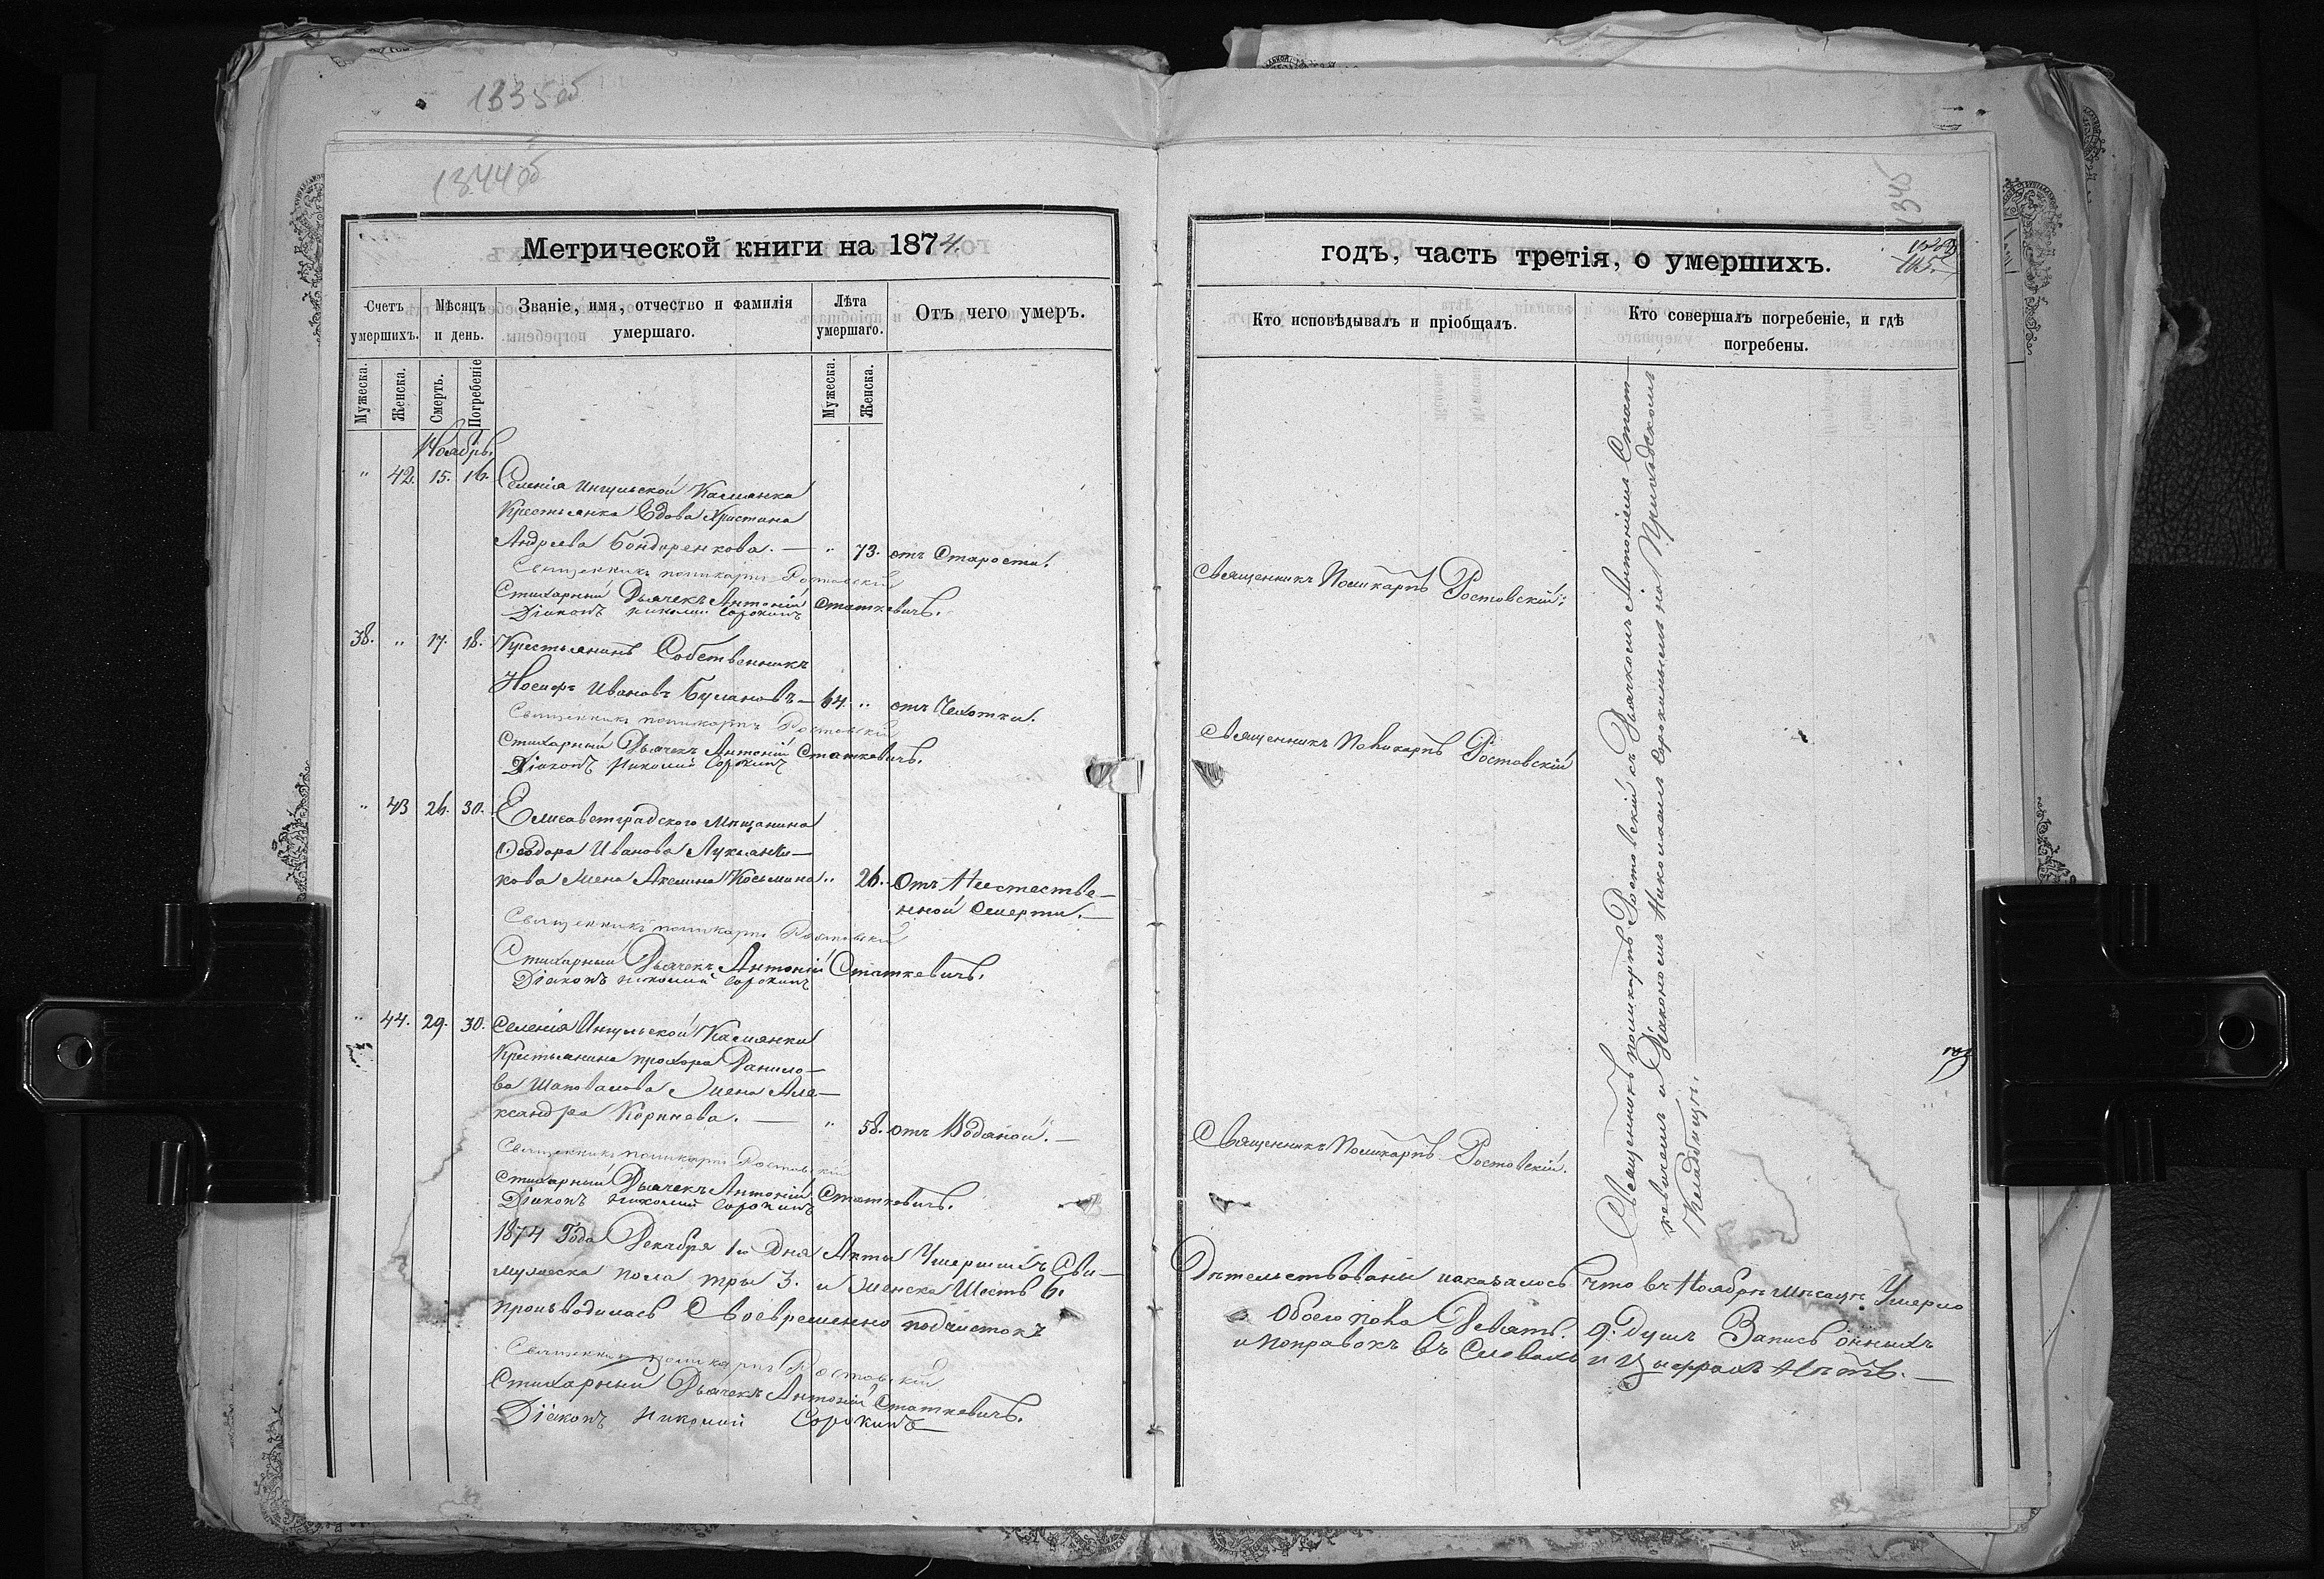 1335об
1344об
1345
Метрической книги на 1874.
годъ, часть третія, о умершихъ.
105.
Счетъ умершихъ.
Мѣсяцъ и день.
Званіе, имя, отчество и фамилія умершаго.
Лѣта умершаго.
Отъ чего умеръ.
Кто исповѣдывалъ и пріобщалъ.
Кто совершалъ погребеніе, и гдѣ погребены.
Мужеска.
Женска.
Смерть.
Погребеніе
Мужеска.
Женска.
Ноябрь.
" 42. 15. 16. Селенія Ингульской Камянка
Крестьянка Вдова Христина
Андреева Бондаренкова. — " 73. отъ Старости.
Священникъ Поликарпъ Ростовскій
Священникъ Поликарпъ Ростовскій
Стихарный Дьячекъ Антоній Статкевичъ.
Діаконъ Николай Сорокинъ
38. " 17. 18. Крестьянинъ Собственникъ
Іосифъ Ивановъ Булановъ — 64. " отъ Чахотки.
Священникъ Поликарпъ Ростовскій
Священникъ Поликарпъ Ростовскій
Стихарный Дьячекъ Антоній Статкевичъ.
Діаконъ Николай Сорокинъ
" 43 26. 30. Елисаветградского Мѣщанина
Ѳеодора Иванова Лукьянчи—
кова жена Акелина Косьмина " 26. Отъ Неестестве—
нной Смерти. —
Священникъ Поликарпъ Ростовскій
Стихарный Дьячекъ Антоній Статкевичъ.
Діаконъ Николай Сорокинъ
" 44. 29. 30. Селенія Ингульской Камянки
Крестьянина Прохора Данило—
ва Шаповалова жена Але—
ксандра Корнѣева. — " 58. отъ Водяной. —
Священникъ Поликарпъ Ростовскій
Священникъ Поликарпъ Ростовскій.
Стихарный Дьячекъ Антоній Статкевичъ.
Діаконъ Николай Сорокинъ
Священникъ Поликарпъ Ростовскій съ Дьячкомъ Антоніемъ Стат—
кевичомъ и Діакономъ Николаемъ Сорокинымъ на Приходскомъ
Кладбищѣ.
1874 Года Декабря 1го Дня Акты Умершихъ Сви—
дѣтельствованы и оказалось что въ Ноябрѣ мѣсяцѣ Умерло
мужеска пола три 3. и женска Шесть 6.
Обоего пола Девять. 9. Душъ Запись онныхъ
производилась Своевременно подчистокъ
и поправокъ въ Словахъ и Цыфрахъ Нѣтъ. —
Священникъ Поликарпъ Ростовскій
Стихарный Дьячекъ Антоній Статкевичъ.
Діаконъ Николай Сорокинъ